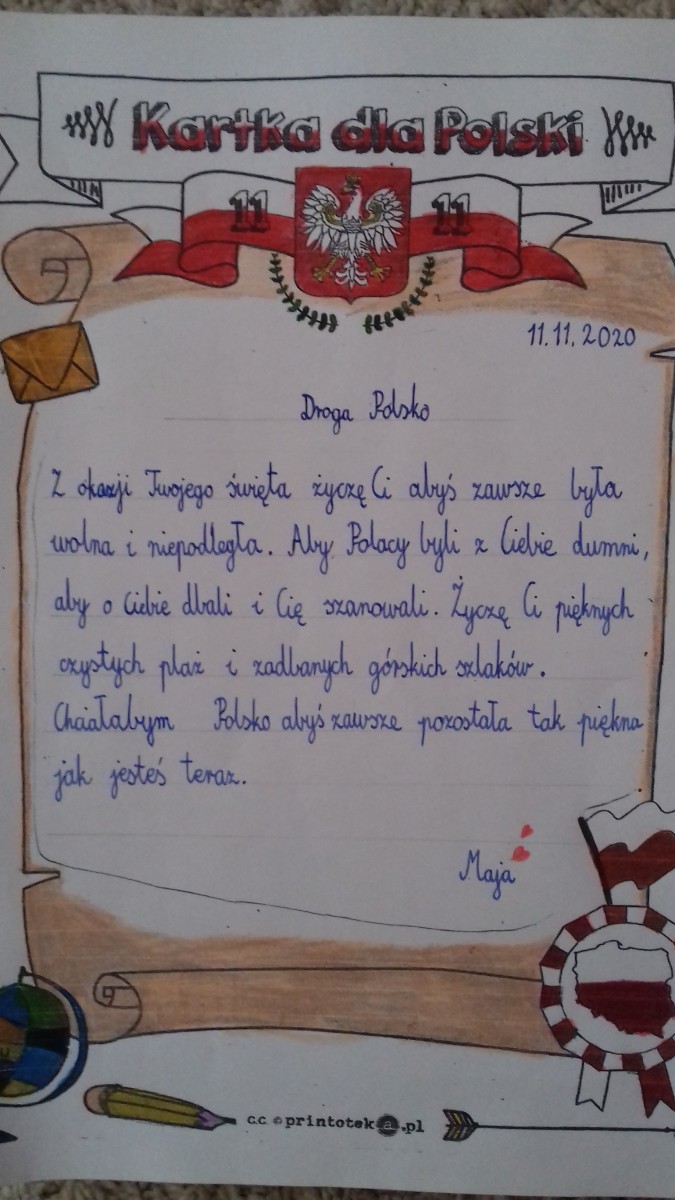 Kartka dla Polski
11 11
11.11.2020
Droga Polsko
Z okazji Twojego święta życzę Ci abyś zawsze była
wolna i niepodległa. Aby Polacy byli z Ciebie dumni,
aby o Ciebie dbali i Cię szanowali. Życzę Ci pięknych
czystych plaż i zadbanych górskich szlaków.
Chciałabym Polsko abyś zawsze pozostała tak piękna
jak jesteś teraz.
Maja
c.c. © printoteka.pl